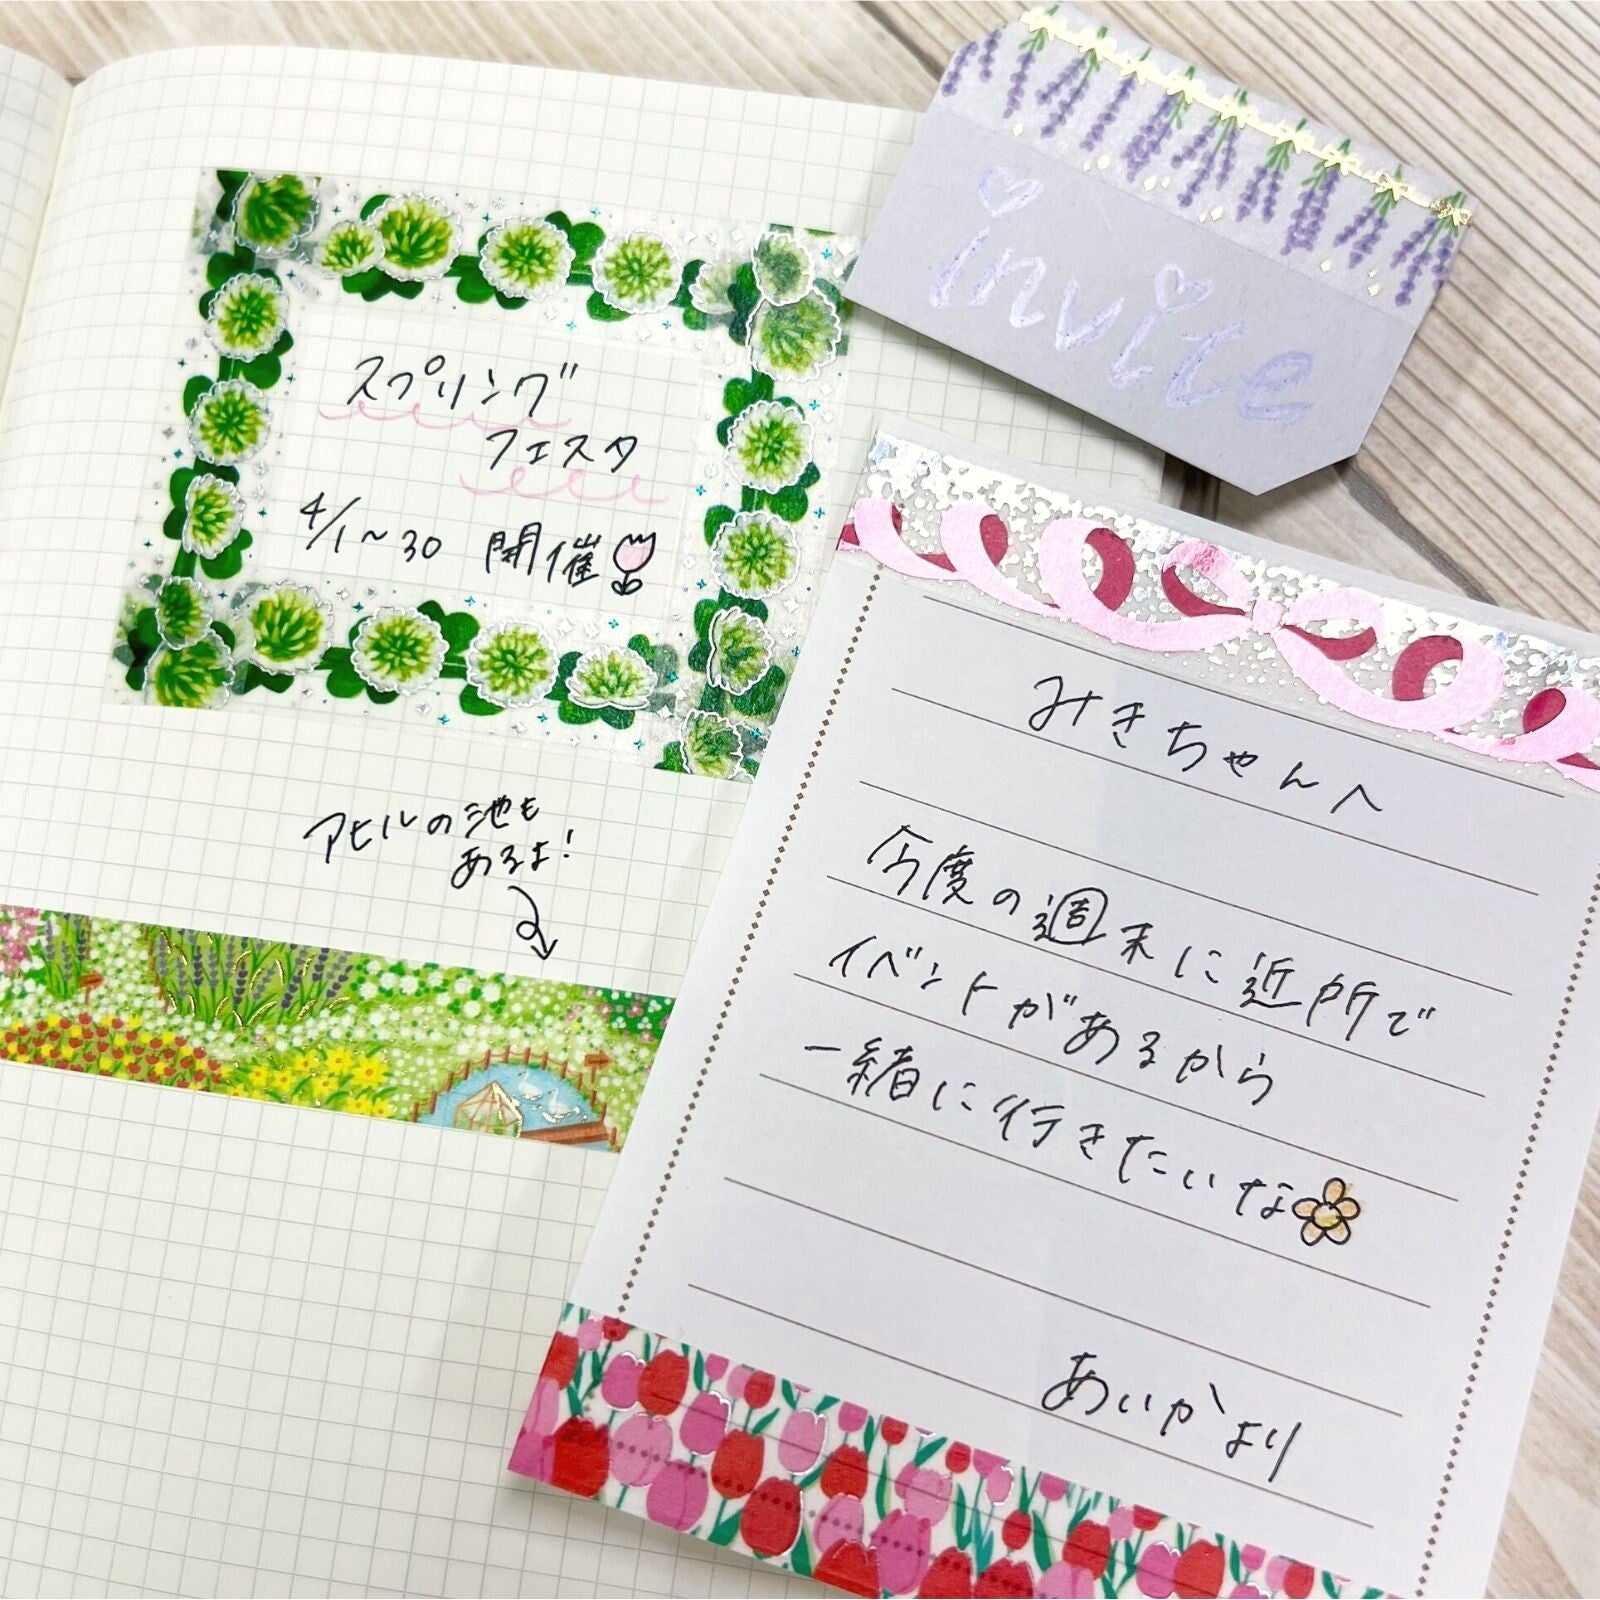 スプリング
フェスタ
4/1~30 開催
アヒルの池も
あるよ!
invite
みきちゃんへ
今度の週末に近所で
イベントがあるから
一緒に行きたいな
あいかより